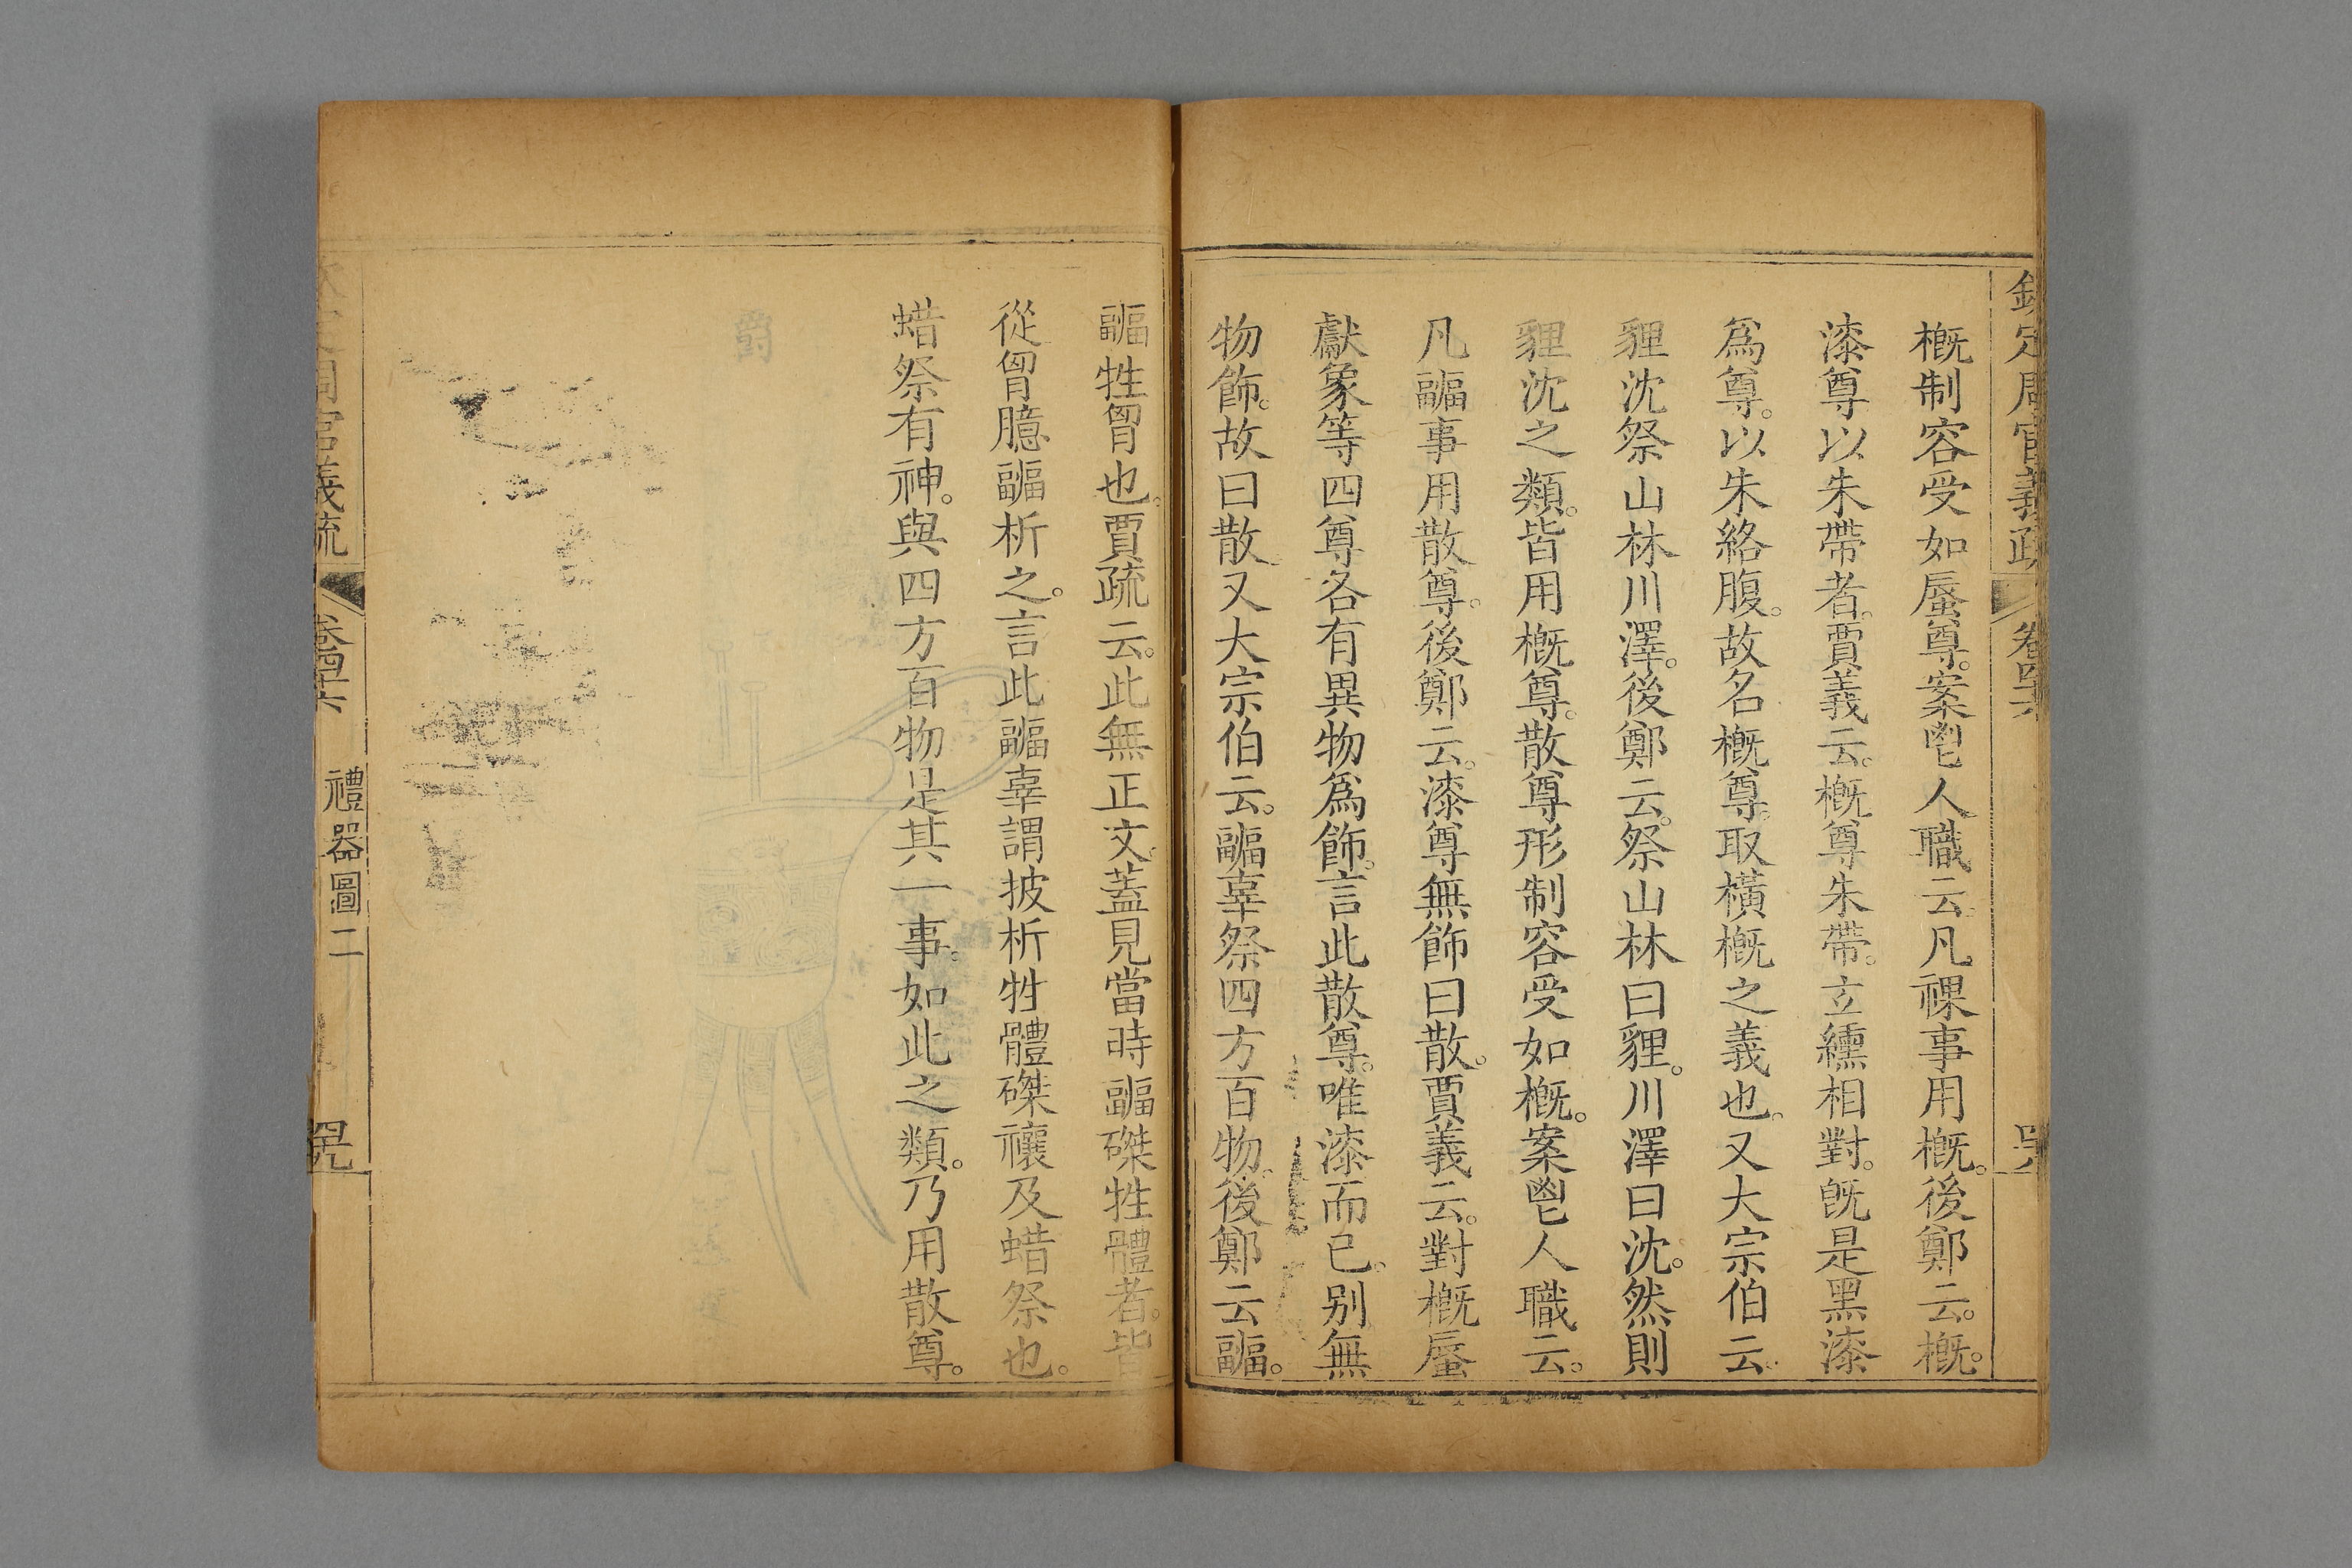 欽定周官義疏 卷四十六
概制容受如蜃尊。案鬯人職云。凡祼事用概。後鄭云。概。
漆尊以朱帶者。賈義云。概尊朱帶。立纁相對。旣是黑漆
爲尊。以朱絡腹。故名概尊。取橫概之義也。又大宗伯云
貍沈祭山林川澤。後鄭云。祭山林曰貍。川澤曰沈。然則
貍沈之類。皆用概尊。散尊形制容受如概。案鬯人職云。
凡疈事用散尊。後鄭云。漆尊無飾曰散。賈義云。對概蜃
獻象等四尊各有異物爲飾。言此散尊。唯漆而已。别無
物飾。故曰散又大宗伯云。疈辜祭四方百物。後鄭云疈。
疈牲胷也。賈疏云。此無正文。蓋見當時疈磔牲體者。皆
從胷臆疈析之。言此疈辜謂披析牲體磔禳及蜡祭也。
蜡祭有神。與四方百物是其一事。如此之類。乃用散尊。
周官義疏 卷四十六 禮器圖二 四九